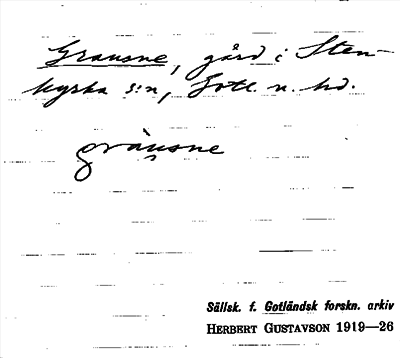 Grausne, gård i Sten-
kyrka s:n, Gotl. n. hd.
gràu̯sne
Sällsk. f. Gotländsk forskn. arkiv
HERBERT GUSTAVSON 1919—26